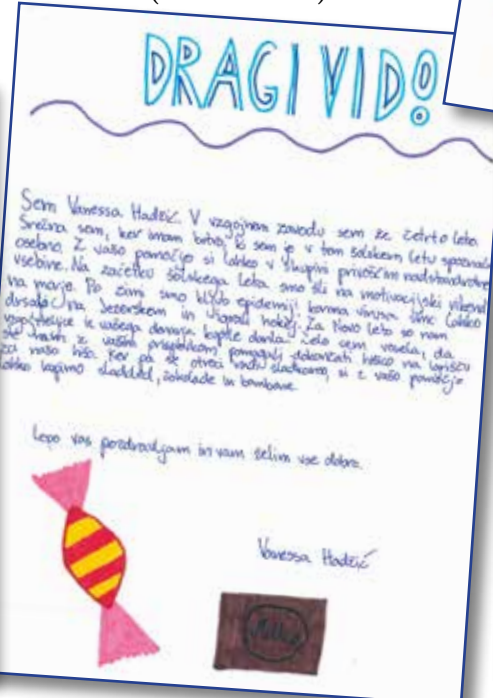 DRAGI VID!
Sem Vanessa Hadžić. V vzgojnem zavodu sem že četrto leto.
Srečna sem, ker imam botro, ki sem jo v tem šolskem letu spoznala
osebno. Z vašo pomočjo si lahko v skupini privoščimo nadstandardne
vsebine. Na začetku šolskega leta smo šli na motivacijski vikend
na morje. Po zimi smo kljub epidemiji korona virusa šle lahko
drsale na Jezerskem in igrali hokej. Za Novo leto so nam
vzgojiteljice iz vašega denarja kupile darila. Zelo sem vesela, da
ste nam z vašim prispevkom pomagali dokončati hišico na
za našo hišo. Ker pa se otroci radi sladkamo, si z vašo pomočjo
lahko kupimo sladoled, čokolade in bombone.
Lepo vas pozdravljam in vam želim vse dobro.
Vanessa Hadžić
Milka